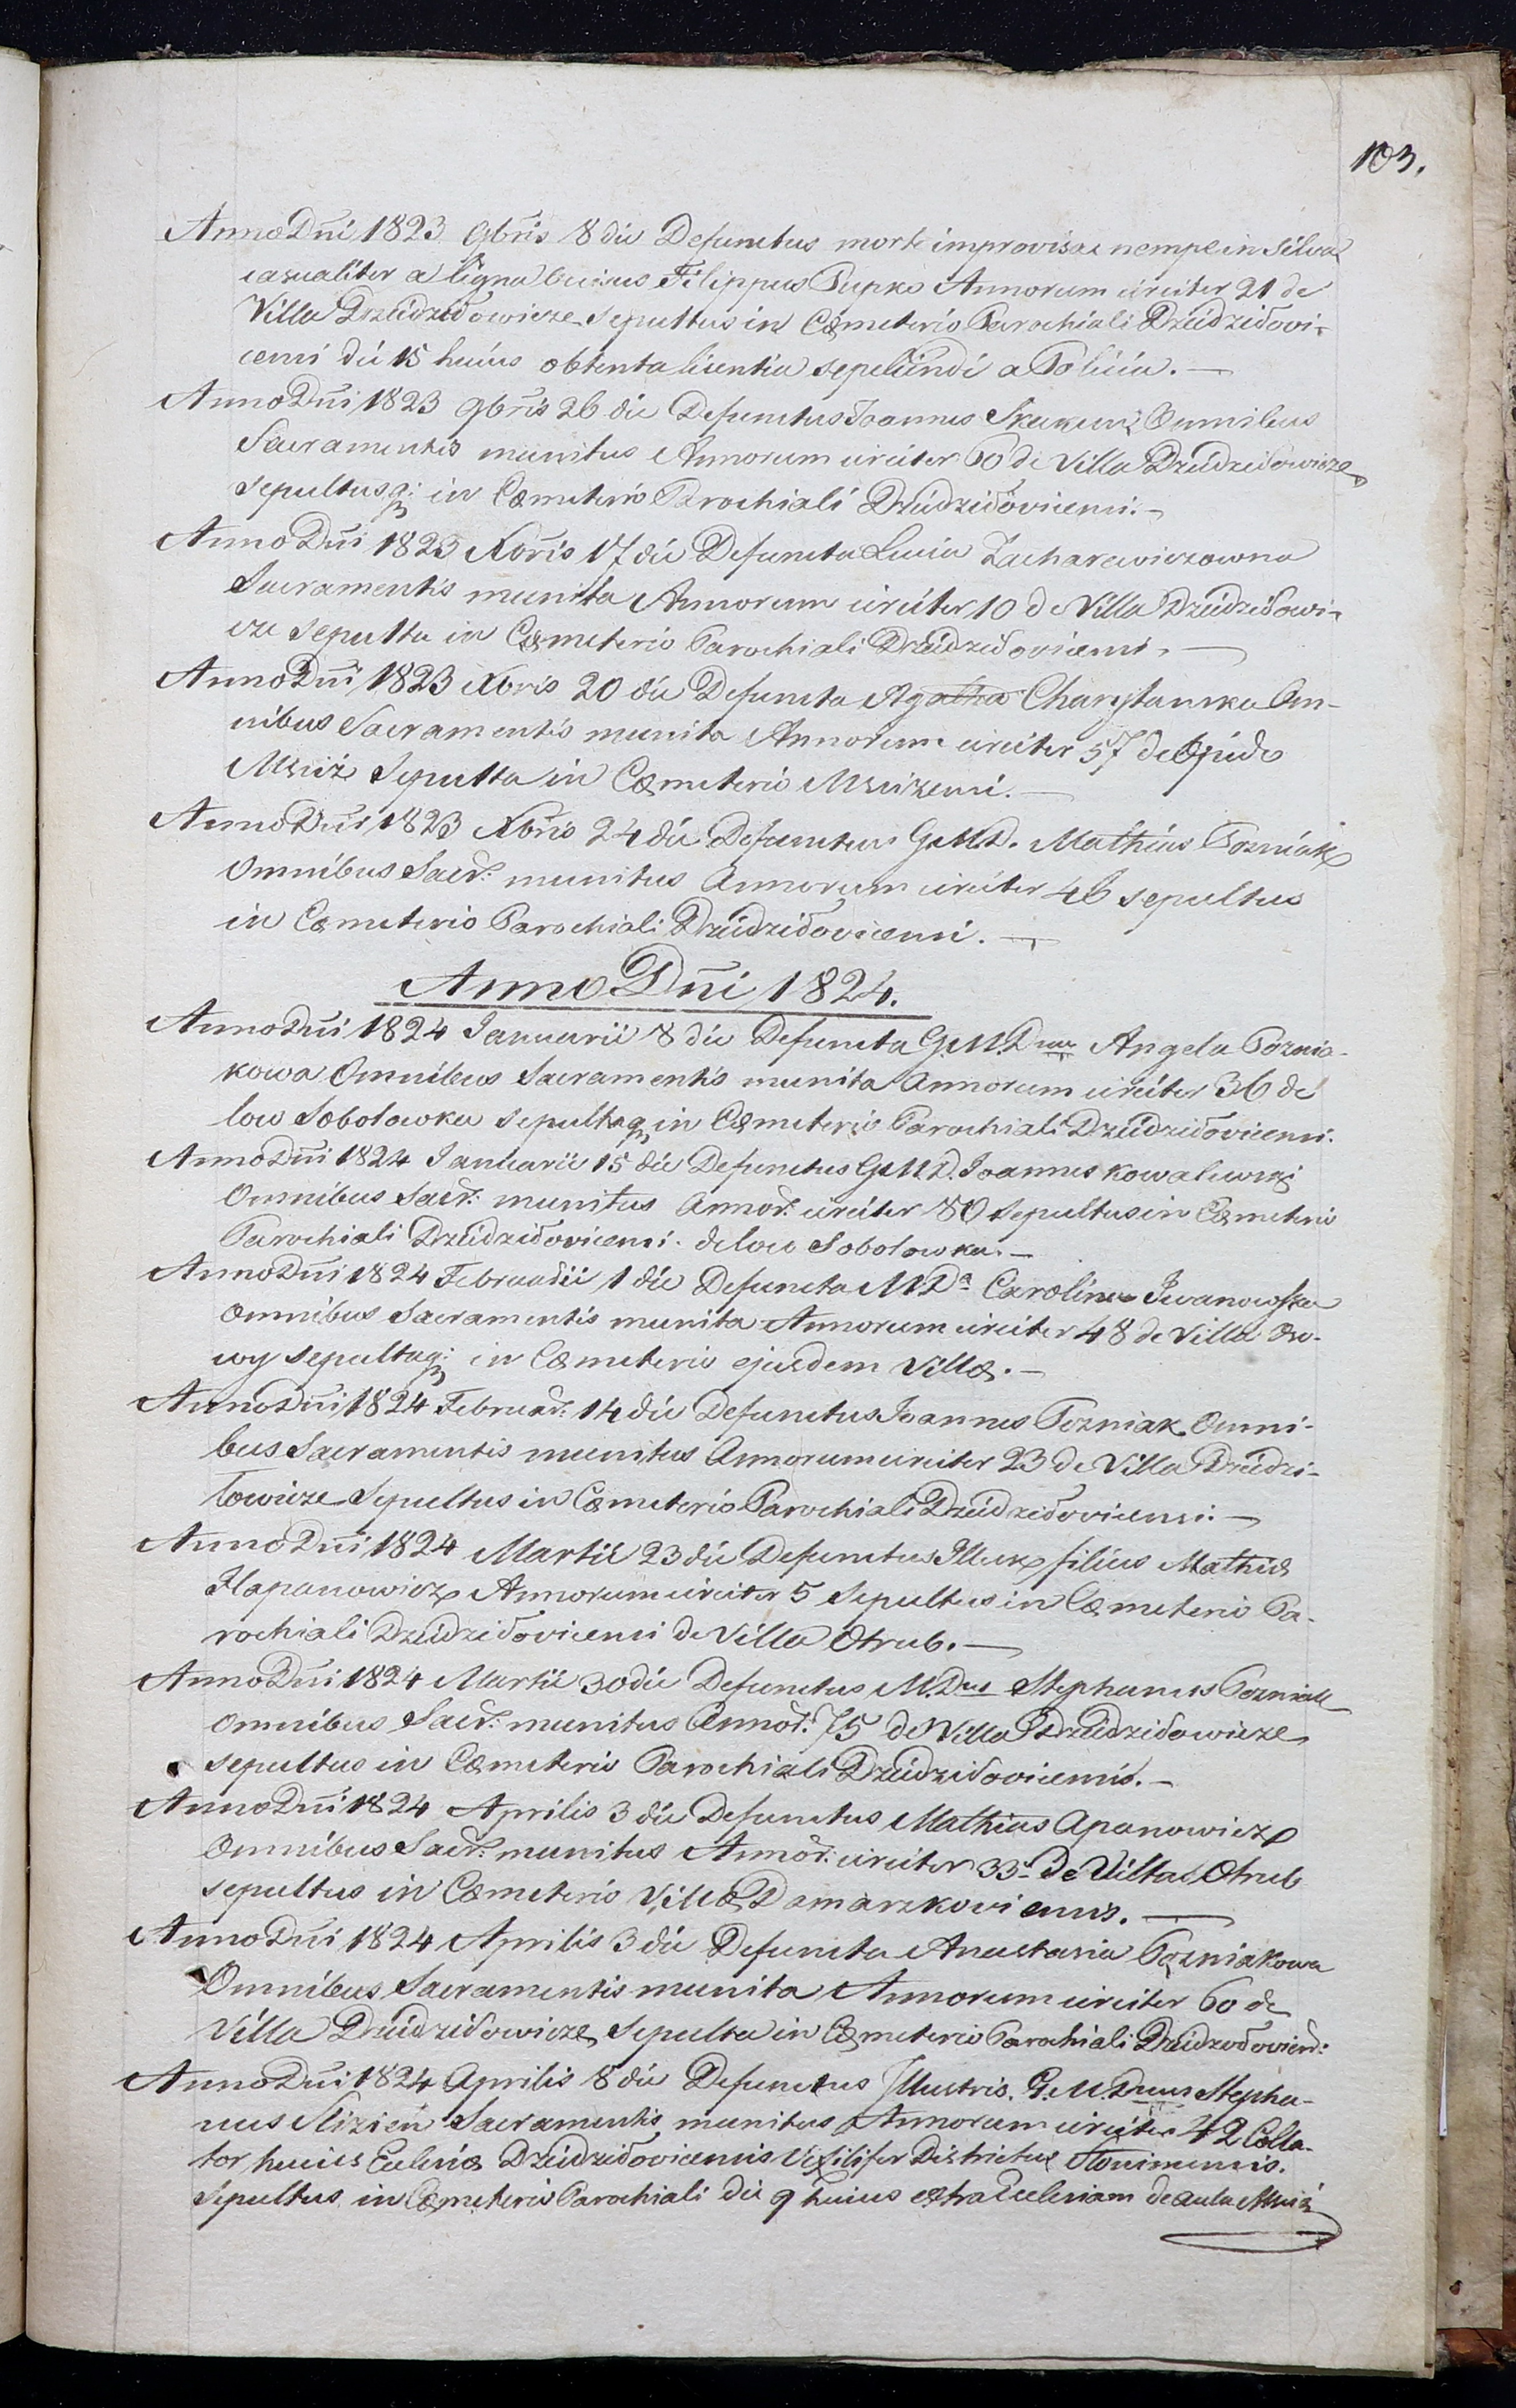 103.
Anno Dñi 1823 9bris 8 die Defunctus morte improvisa nempe in silva
casualiter a ligna occisus Filippus Pupko Annorum circiter 21 de
Villa Dziedziłowicze sepultus in Cæmeterio Parochiali Dziedziłovi-
censi die 15 huius obtenta licentia sepeliendi a Policia. —
Anno Dñi 1823 9bris 26 die Defunctus Joannes Omnibus
Sacramentis munitus Annorum circiter 60 de Villa Dziedziłowicze
sepultusq: in Cæmeterio Parochiali Dziedziłovicensi. —
Anno Dñi 1823 Xbris 17 die Defuncta Lucia Zacharewiczowna
Sacramentis munita Annorum circiter 10 de Villa Dziedziłowi-
cze sepulta in Cæmeterio Parochiali Dziedziłovicensi. —
Anno Dñi 1823 Xbris 20 die Defuncta Agatha Charytanska Om-
nibus Sacramentis munita Annorum circiter 57 de Opido
Mściż Sepulta in Cæmeterio Mścizensi. —
Anno Dñi 1823 Xbris 24 die Defunctus G.M.D. Mathias Pozniak
Omnibus Sacr: munitus Annorum circiter 46 sepultus
in Cæmeterio Parochiali Dziedziłovicensi. —
Anno Dñi 1824.
Anno Dñi 1824 Januarii 8 die Defuncta G.M.Dna Angela Poznia-
kowa Omnibus Sacramentis munita Annorum circiter 36 de
loco Sobolowka sepultaq in Cæmeterio Parochiali Dziedziłovicensi.
Anno Dñi 1824 Januarii 15 die Defunctus G.M.D. Joannes Kowalewski
Omnibus Sacr: munitus Annor: circiter 80 sepultus in Cæmeterio
Parochiali Dziedziłovicensi. de loco Sobolowka. —
Anno Dñi 1824 Februarii 1 die Defuncta M.Da Carolina Iwanowska
Omnibus Sacramentis munita Annorum circiter 48 de Villa Oso-
wy sepultaq: in Cæmeterio ejusdem Villæ. —
Anno Dñi 1824 Februar: 14 die Defunctus Joannes Pozniak Omni-
bus Sacramentis munitus Annorum circiter 23 de Villa Dziedzi-
łowicze Sepultus in Cæmeterio Parochiali Dziedziłovicensi. —
Anno Dñi 1824 Martii 23 die Defunctus filius Mathiæ
Hapanowicz Annorum circiter 5 Sepultus in Cæmeterio Pa-
rochiali Dziedziłovicensi de Villa Otrub. —
Anno Dñi 1824 Martii 30 die Defunctus M.Dnus Stephanus Pozniak
Omnibus Sacr: munitus Annor: 75 de Villa Dziedziłowicze
sepultus in Cæmeterio Parochiali Dziedziłovicensis. —
Anno Dñi 1824 Aprilis 3 die Defunctus Mathias Apanowicz
Omnibus Sacr: munitus Annor: circiter 33. De Villa Otrub
sepultus in Cæmeterio Villæ Damarzkoviensis. —
Anno Dñi 1824 Aprilis 3 die Defuncta Anastasia Pozniakowa
Omnibus Sacramentis munita Annorum circiter 60 de
Villa Dziedziłowicze Sepulta in Cæmeterio Parochiali
Anno Dñi 1824 Aprilis 8 die Defunctus Illustris. G.M.Dnus Stepha-
nus Slizień Sacramentis munitus Annorum circiter 42 Colla-
tor huius Eclesiæ Dziedziłovicensis Vexilifer Districtus Słonimensis.
Sepultus in Cæmeterio Parochiali die 9 huius extra Eclesiam de aula Mściż